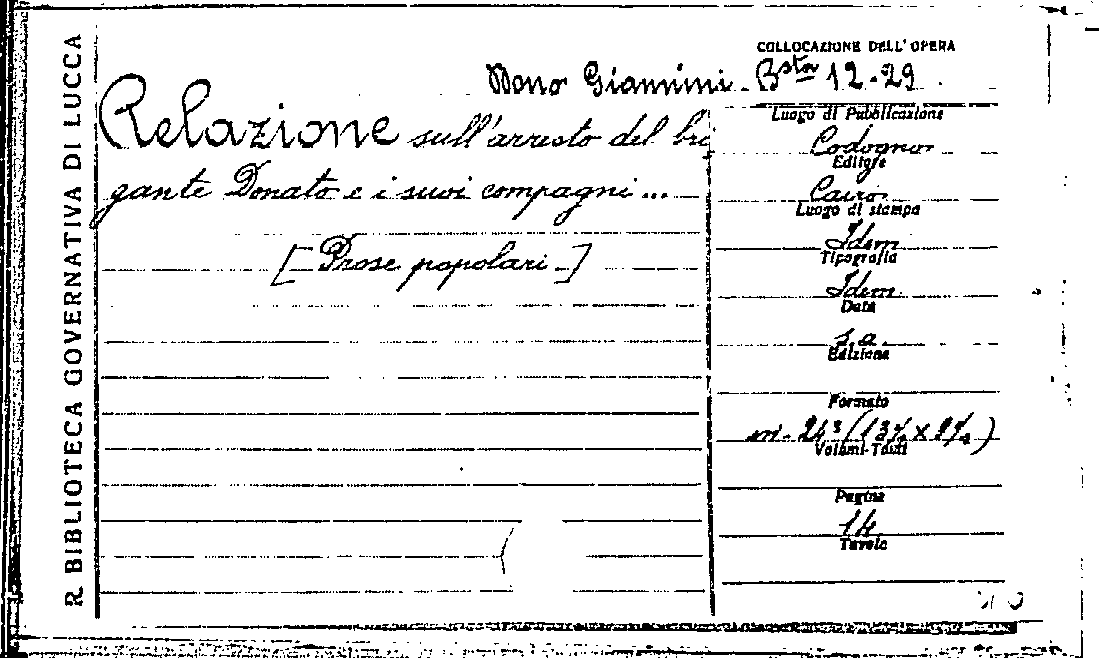 R. BIBLIOTECA GOVERNATIVA DI LUCCA
COLLOCAZIONE DELL'OPERA
Dono Giannini - Bsta 12-29
Relazione sull'arresto del bri
gante Donato e i suoi compagni...
[Prose popolari]
Luogo di Pubblicazione
Codogno
Editore
Cairo
Luogo di stampa
Idem
Tipografia
Idem
Data
s.a.
Edizione
Formato
in-24°
Volumi-Tomi
Pagine
14
Tavole